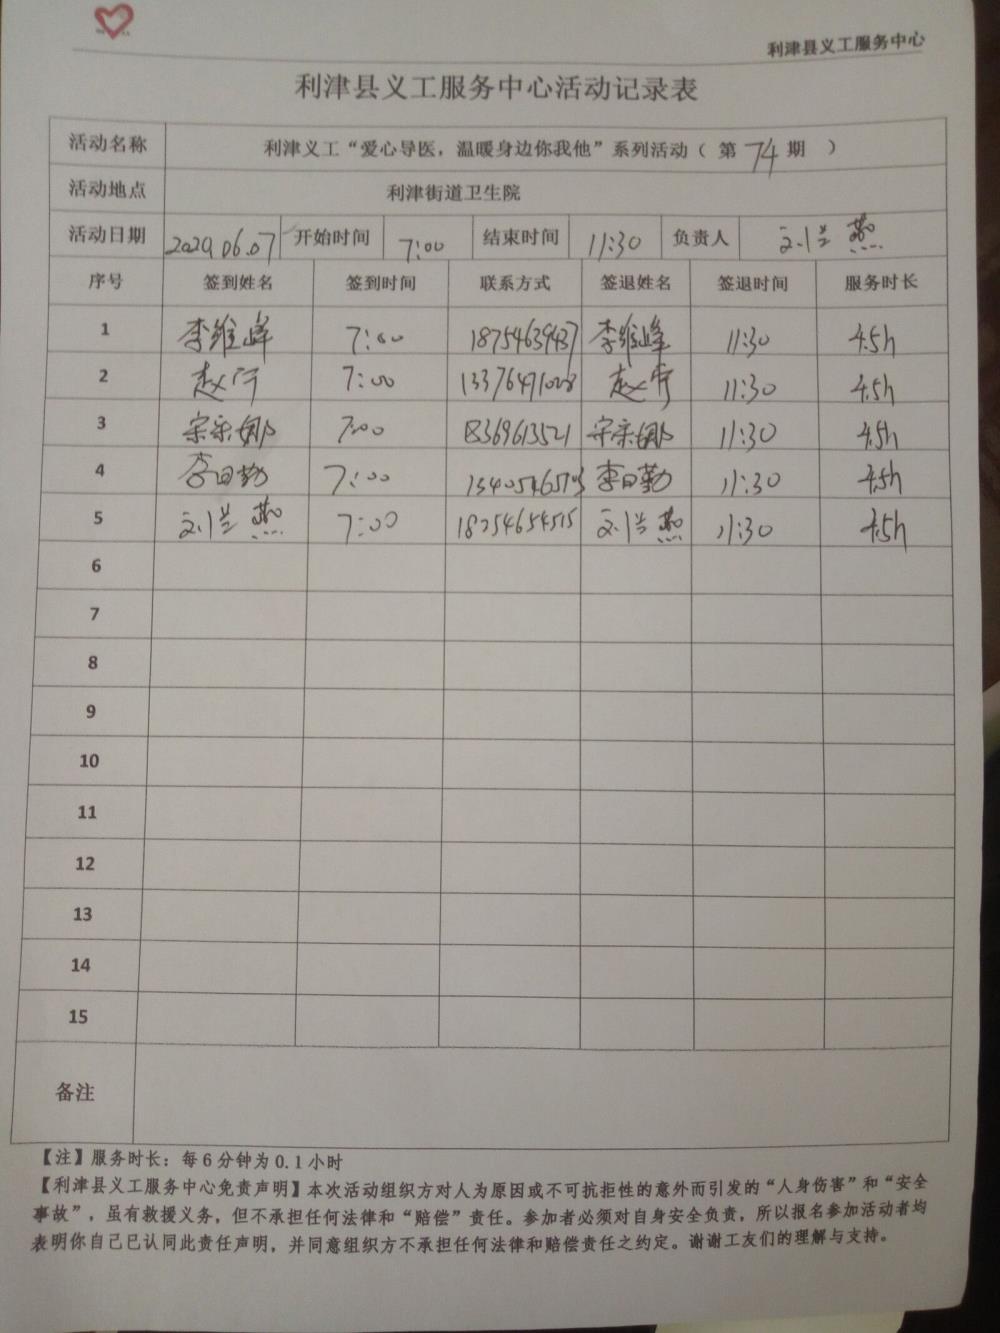 利津县义工服务中心
利津县义工服务中心活动记录表
活动名称 利津义工“爱心导医，温暖身边你我他”系列活动（ 第 74 期 ）
活动地点 利津街道卫生院
活动日期 2020.06.07 开始时间 7:00 结束时间 11:30 负责人 刘兰燕
序号 签到姓名 签到时间 联系方式 签退姓名 签退时间 服务时长
1 李维峰 7:00 18754639437 李维峰 11:30 4.5h
2 7:00 13376471028 11:30 4.5h
3 宋宗娜 7:00 8369613521 宋宗娜 11:30 4.5h
4 李日勤 7:00 李日勤 11:30 4.5h
5 刘兰燕 7:00 18254654515 刘兰燕 11:30 4.5h
6
7
8
9
10
11
12
13
14
15
备注
【注】服务时长：每6分钟为0.1小时
【利津县义工服务中心免责声明】本次活动组织方对人为原因或不可抗拒性的意外而引发的“人身伤害”和“安全
事故”，虽有救援义务，但不承担任何法律和“赔偿”责任。参加者必须对自身安全负责，所以报名参加活动者均
表明你自己已认同此责任声明，并同意组织方不承担任何法律和赔偿责任之约定。谢谢工友们的理解与支持。